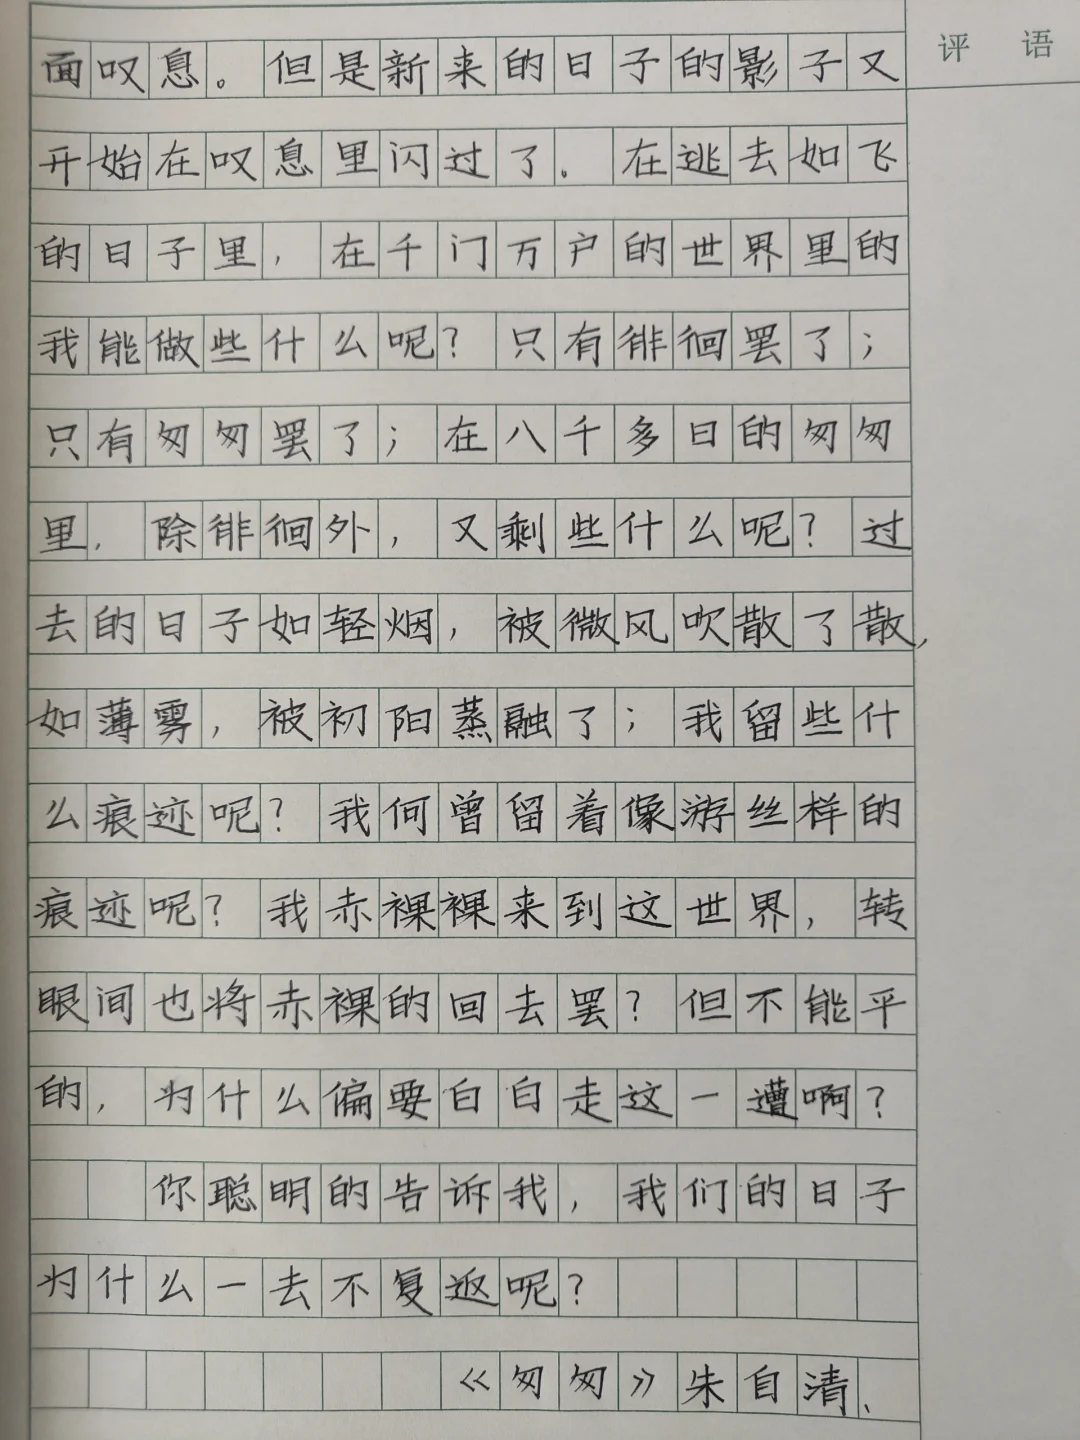 评 语
面叹息。但是新来的日子的影子又
开始在叹息里闪过了。在逃去如飞
的日子里，在千门万户的世界里的
我能做些什么呢？只有徘徊罢了；
只有匆匆罢了；在八千多日的匆匆
里，除徘徊外，又剩些什么呢？过
去的日子如轻烟，被微风吹散了散，
如薄雾，被初阳蒸融了；我留些什
么痕迹呢？我何曾留着像游丝样的
痕迹呢？我赤裸裸来到这世界，转
眼间也将赤裸的回去罢？但不能平
的，为什么偏要白白走这一遭啊？
你聪明的告诉我，我们的日子
为什么一去不复返呢？
《匆匆》朱自清、